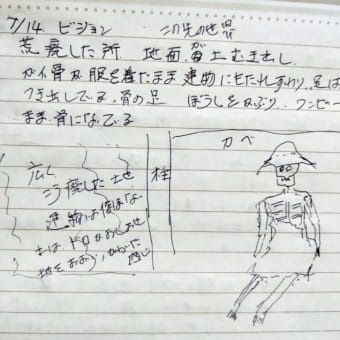 7/14 ビジョン この先の世界
荒廃した所 地面が土むき出し
ガイ骨が服を着たまま建物にもたれすわり、足は
つき出している、骨の足 ぼうしをかぶり、ワンピー
まま、骨になっている
カベ
柱
広く
こう廃した土地
建物は後ほ
土は ドロがおしよせ
地をおおう、かわいた感じ